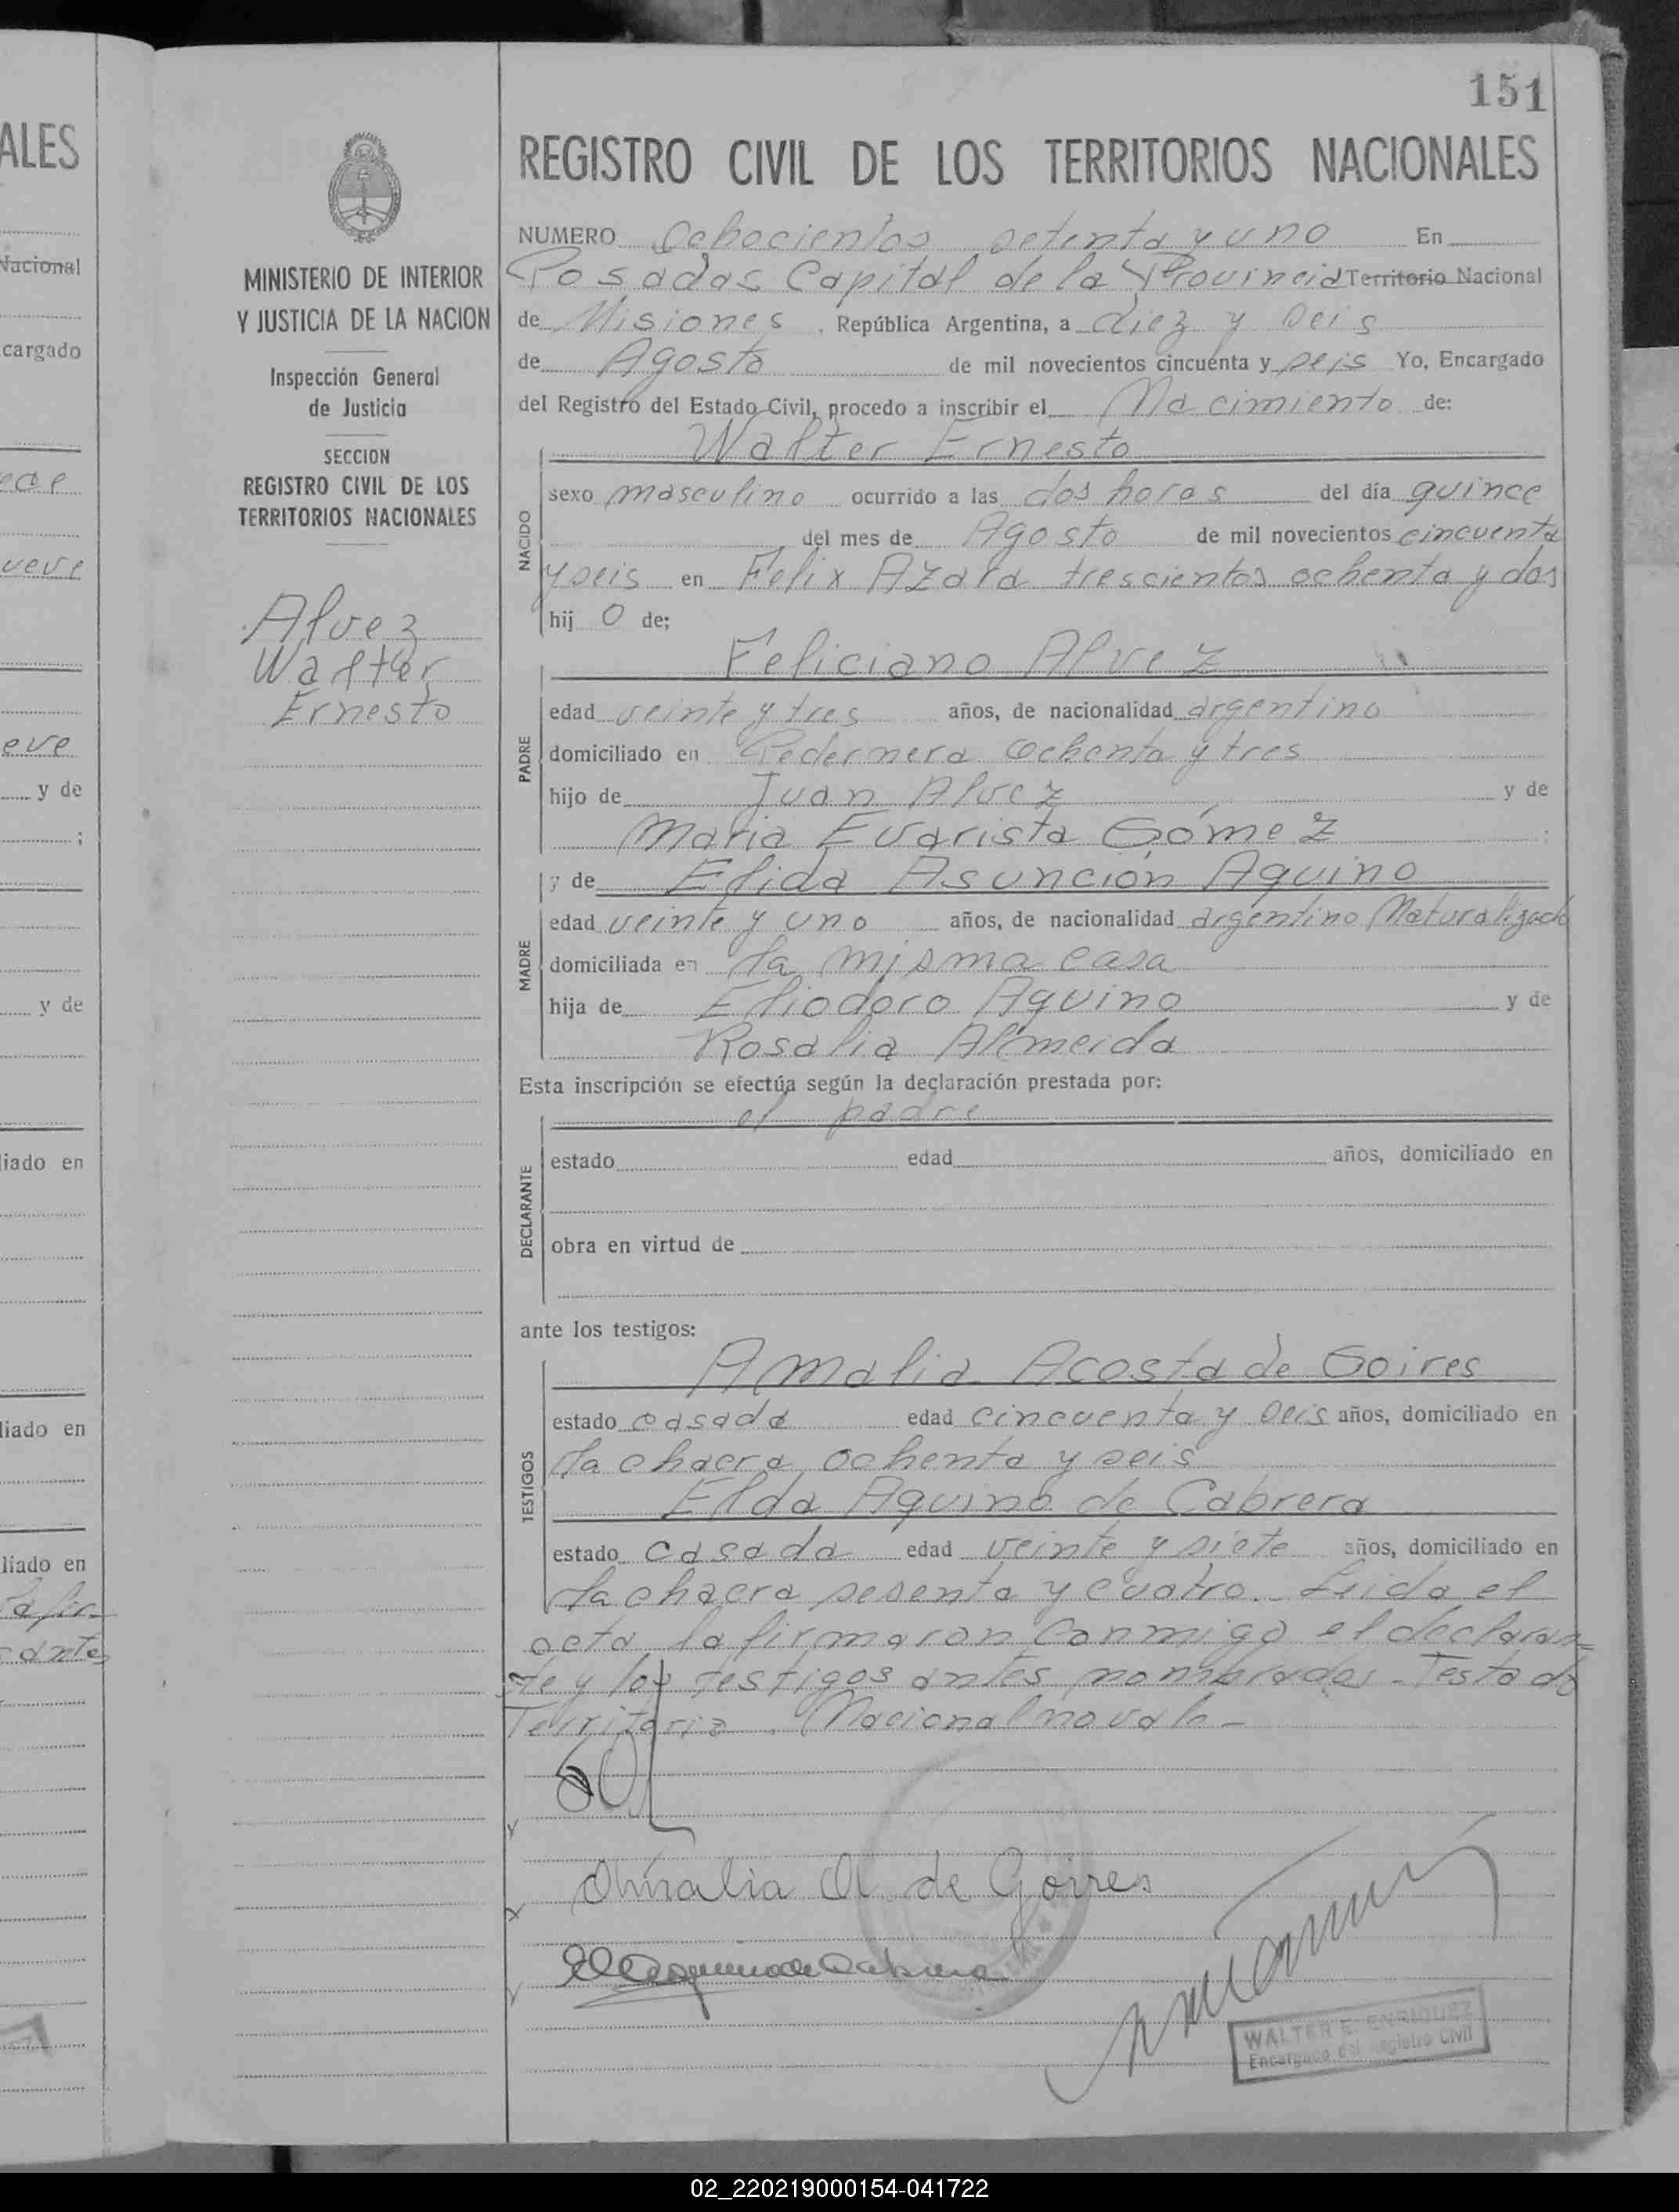 151
REGISTRO CIVIL DE LOS TERRITORIOS NACIONALES
MINISTERIO DE INTERIOR
Y JUSTICIA DE LA NACION
Inspección General
de Justicia
SECCION
REGISTRO CIVIL DE LOS
TERRITORIOS NACIONALES
Alvez
Walter
Ernesto
NUMERO Ochocientos setenta y uno En
Posadas Capital de la Provincia Territorio Nacional
de Misiones, República Argentina, a diez y seis
de Agosto de mil novecientos cincuenta y seis Yo, Encargado
del Registro del Estado Civil, procedo a inscribir el Nacimiento de:
NACIDO
Walter Ernesto
sexo masculino ocurrido a las dos horas del día quince
del mes de Agosto de mil novecientos cincuenta
y seis en Felix Azara trescientos ochenta y dos
hij o de;
PADRE
Feliciano Alvez
edad veinte y tres años, de nacionalidad argentino
domiciliado en Pedernera Ochenta y tres
hijo de Juan Alvez y de
Maria Evarista Gómez ;
y de Elida Asunción Aquino
MADRE
edad veinte y uno años, de nacionalidad argentino Naturalizado
domiciliada en la misma casa
hija de Eliodoro Aquino y de
Rosalia Almeida
Esta inscripción se efectúa según la declaración prestada por:
el padre
DECLARANTE
estado edad años, domiciliado en
obra en virtud de
ante los testigos:
TESTIGOS
Amalia Acosta de Goires
estado casada edad cincuenta y seis años, domiciliado en
la chacra ochenta y seis
Elda Aquino de Cabrera
estado casada edad veinte y siete años, domiciliado en
la chacra sesenta y cuatro. Leida el
acta la firmaron conmigo el declaran=
te y los testigos antes nombrados - Testado
Territorio. Nacional no vale -
Amalia A. de Goires
E Aquino de Cabrera
WALTER E. ENRIQUEZ
Encargado del Registro Civil
ALES
Nacional
cargado
eve
y de
;
y de
liado en
liado en
liado en
02_220219000154-041722